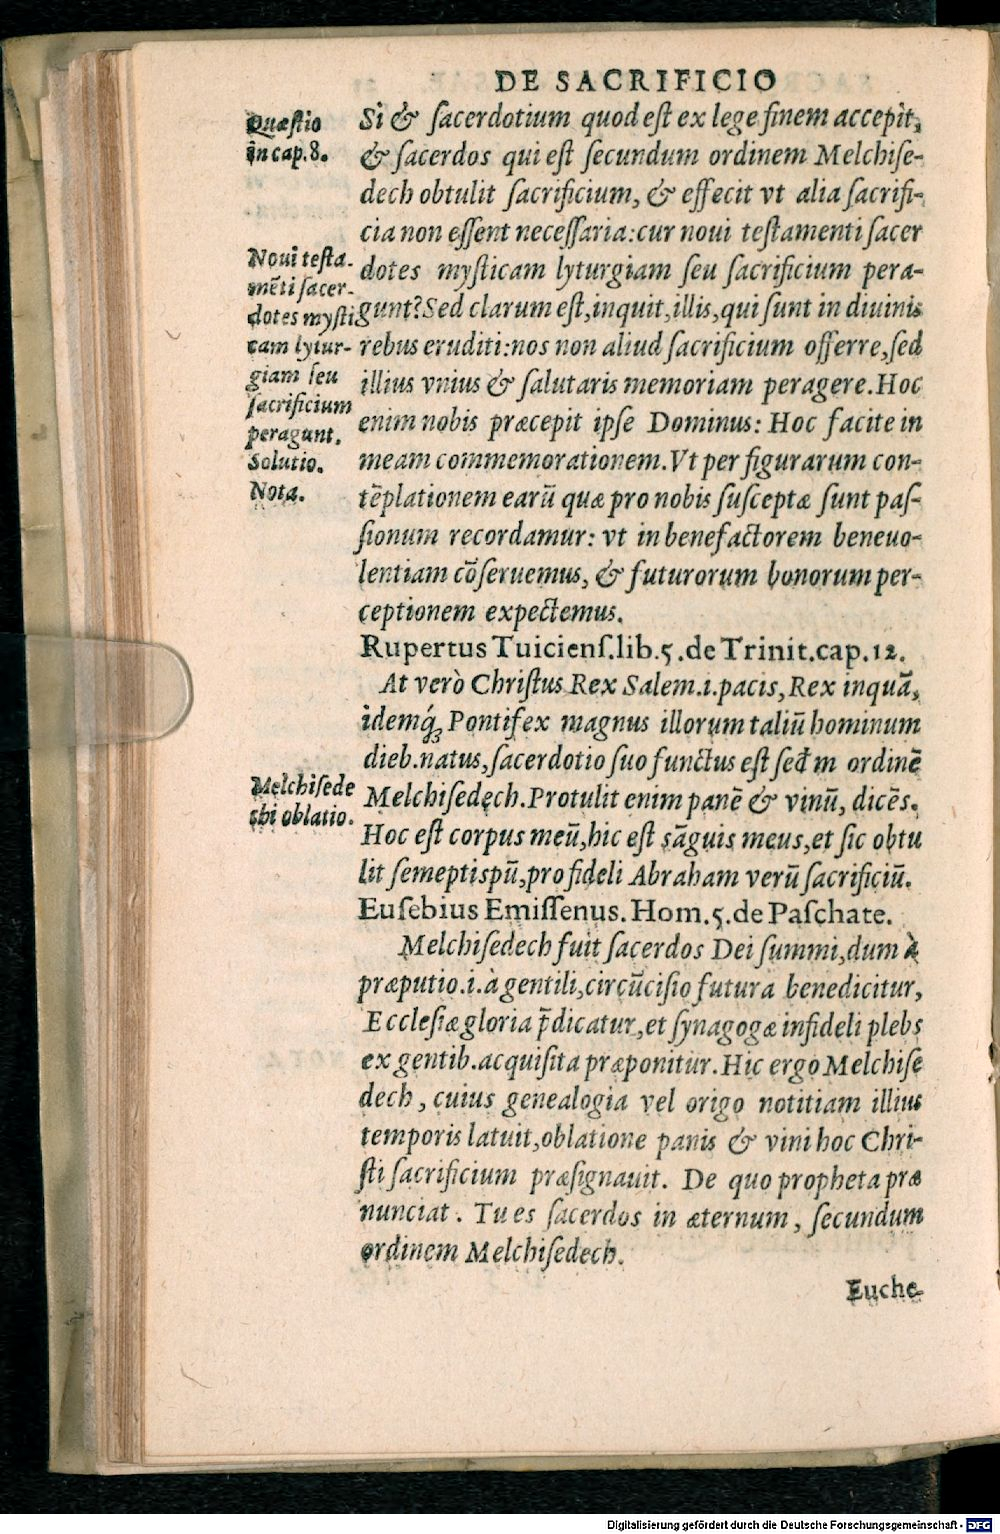 DE SACRIFICIO
Quæſtio
in cap.8.
Si & ſacerdotium quod eſt ex lege finem accepit,
& ſacerdos qui eſt ſecundum ordinem Melchiſe-
dech obtulit ſacrificium, & effecit vt alia ſacrifi-
cia non eſſent neceſſaria:cur noui teſtamenti ſacer
dotes myſticam lyturgiam ſeu ſacrificium pera-
gunt?Sed clarum eſt,inquit,illis,qui ſunt in diuinis
rebus eruditi:nos non aliud ſacrificium offerre,ſed
illius vnius & ſalutaris memoriam peragere.Hoc
enim nobis præcepit ipſe Dominus: Hoc facite in
meam commemorationem.Vt per figurarum con-
tēplationem earū quæ pro nobis ſuſceptæ ſunt paſ-
ſionum recordamur: vt in benefactorem beneuo-
lentiam cōſeruemus, & futurorum bonorum per-
ceptionem expectemus.
Noui teſta-
mēti ſacer-
dotes myſti
cam lytur-
giam ſeu
ſacrificium
peragunt.
Solutio.
Nota.
Rupertus Tuicienſ.lib.5.de Trinit.cap.12.
At verò Chriſtus Rex Salem.i.pacis,Rex inquā,
idemq́; Pontifex magnus illorum taliū hominum
dieb.natus,ſacerdotio ſuo functus eſt ſecđm ordinē
Melchiſedech.Protulit enim panē & vinū, dicēs.
Hoc eſt corpus meū,hic eſt sāguis meus,et ſic obtu
lit ſemetipſū,pro fideli Abraham verū ſacrificiū.
Melchiſede
chi oblatio.
Euſebius Emiſſenus.Hom.5.de Paſchate.
Melchiſedech fuit ſacerdos Dei ſummi,dum à
præputio.i.à gentili,circūciſio futura benedicitur,
Eccleſiæ gloria p̄dicatur,et ſynagogæ infideli plebs
ex gentib.acquiſita præponitur.Hic ergo Melchiſe
dech, cuius genealogia vel origo notitiam illius
temporis latuit,oblatione panis & vini hoc Chri-
ſti ſacrificium præſignauit. De quo propheta præ
nunciat. Tu es ſacerdos in æternum, ſecundum
ordinem Melchiſedech.
Euche-
Digitalisierung gefördert durch die Deutsche Forschungsgemeinschaft - DFG